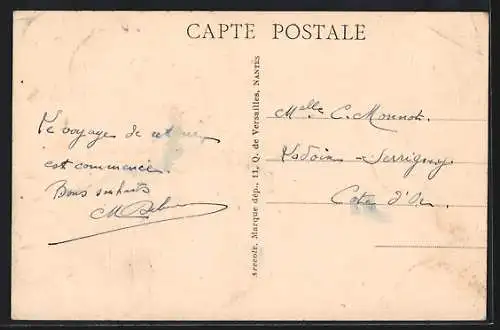 CARTE POSTALE
Le voyage de cet
est commencé.
Bons souhaits
Artcolr. Marque dép., 11, Q. de Versailles, NANTES
Melle C. Monnot.
Ladoix - Serrigny
Cote d'Or.